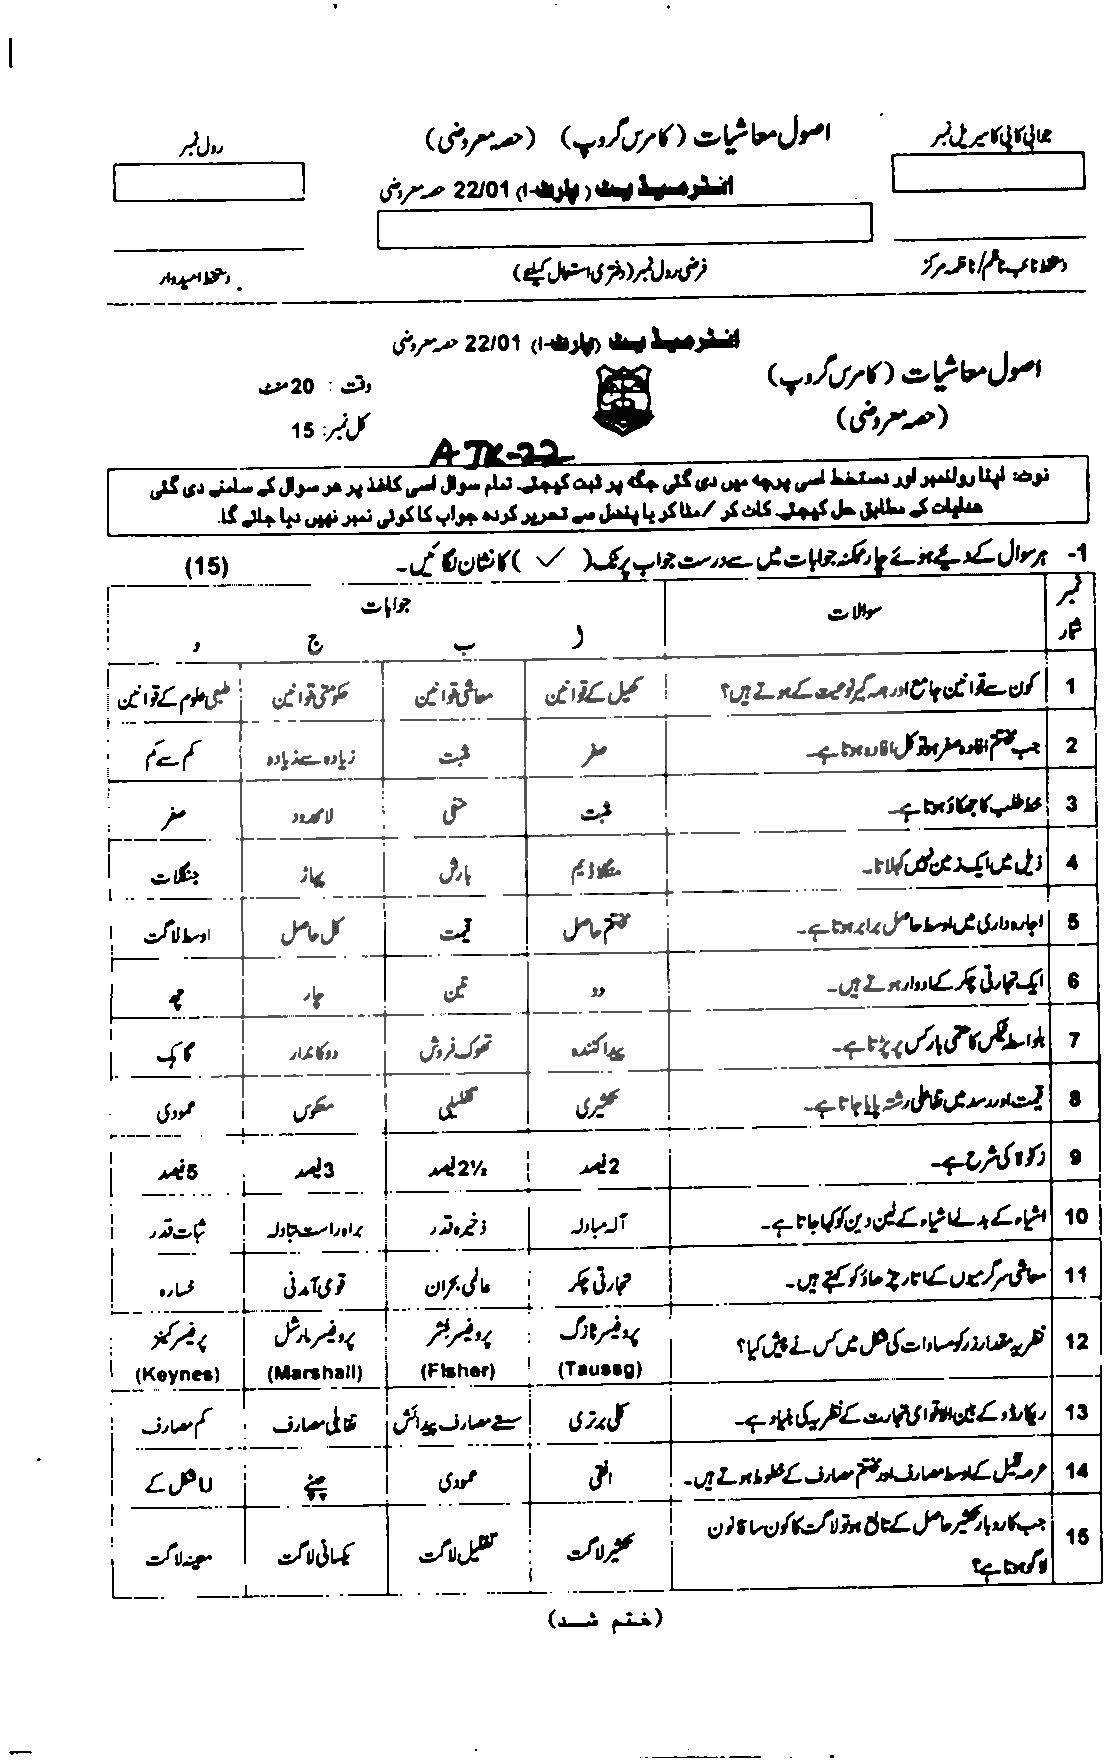 جوابی کاپی کا سیریل نمبر
اصول معاشیات (کامرس گروپ) (حصہ معروضی)
رول نمبر
انٹرمیڈیٹ (پارٹ-I) 22/01 حصہ معروضی
دستخط نائب ناظم/ناظمہ مرکز
فرضی رول نمبر (دفتری استعمال کیلئے)
دستخط امیدوار
انٹرمیڈیٹ (پارٹ-I) 22/01 حصہ معروضی
اصول معاشیات (کامرس گروپ)
وقت : 20 منٹ
(حصہ معروضی)
کل نمبر: 15
AJK-22
نوٹ: اپنا رولنمبر اور دستخط اسی پرچہ میں دی گئی جگہ پر ثبت کیجئے۔ تمام سوال اسی کاغذ پر ہر سوال کے سامنے دی گئی
ہدایات کے مطابق حل کیجئے۔ کاٹ کر/مٹا کر یا پنسل سے تحریر کردہ جواب کا کوئی نمبر نہیں دیا جائے گا۔
1- ہر سوال کے دیئے ہوئے چار ممکنہ جوابات میں سے درست جواب پر ٹک (✓) کا نشان لگائیں۔ (15)
نمبر شمار سوالات جوابات
ا ب ج د
1 کون سے قوانین جامع اور ہمہ گیر نوعیت کے ہوتے ہیں؟ کھیل کے قوانین معاشی قوانین حکومتی قوانین طبعی علوم کے قوانین
2 جب مختتم افادہ صفر ہو تو کل افادہ ہوتا ہے۔ صفر مثبت زیادہ سے زیادہ کم سے کم
3 خط طلب کا جھکاؤ ہوتا ہے۔ مثبت منفی لامحدود صفر
4 ذیل میں ایک زمین نہیں کہلاتا۔ منگلا ڈیم بارش پہاڑ جنگلات
5 اجارہ داری میں اوسط حاصل برابر ہوتا ہے۔ مختتم حاصل قیمت کل حاصل اوسط لاگت
6 ایک تجارتی چکر کے ادوار ہوتے ہیں۔ دو تین چار چھ
7 بلواسطہ ٹیکس کا حتمی بار کس پر پڑتا ہے۔ پیدا کنندہ تھوک فروش دوکاندار گاہک
8 قیمت اور رسد میں تفاعلی رشتہ پایا جاتا ہے۔ تکثیری تقلیلی معکوس عمودی
9 زکوٰۃ کی شرح ہے۔ 2 فیصد 2½ فیصد 3 فیصد 5 فیصد
10 اشیاء کے بدلے اشیاء کے لین دین کو کہا جاتا ہے۔ آلہ مبادلہ ذخیرہ قدر براہ راست تبادلہ ثبات قدر
11 معاشی سرگرمیوں کے اتار چڑھاؤ کو کہتے ہیں۔ تجارتی چکر عالمی بحران قومی آمدنی خسارہ
12 نظریہ مقدار زر کو مساوات کی شکل میں کس نے پیش کیا؟ پروفیسر ٹازگ پروفیسر فشر پروفیسر مارشل پرفیسر کینز
(Taussg) (Fisher) (Marshall) (Keynes)
13 ریکارڈو کے بین الاقوامی تجارت کے نظریہ کی بنیاد ہے۔ کلی برتری سستے مصارف پیدائش تقابلی مصارف کم مصارف
14 عرصہ قلیل کے اوسط مصارف اور مختتم مصارف کے خطوط ہوتے ہیں۔ افقی عمودی چپٹے U شکل کے
15 جب کاروبار تکثیر حاصل کے تابع ہو تو لاگت کا کون سا قانون
لاگو ہوتا ہے؟ تکثیر لاگت تقلیل لاگت یکسانی لاگت معینہ لاگت
(ختم شد)